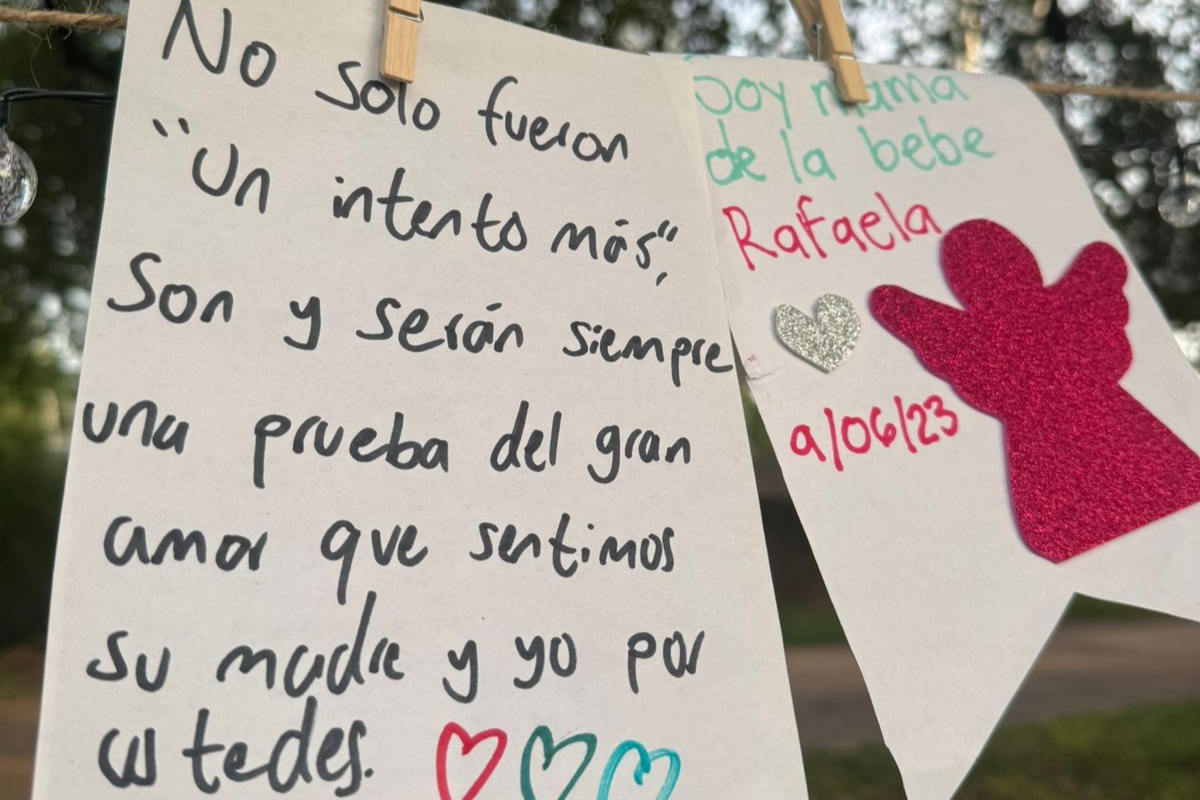 No solo fueron
"Un intento más",
Son y serán siempre
una prueba del gran
amor que sentimos
su madre y yo por
ustedes.
Soy mama
de la bebe
Rafaela
9/06/23